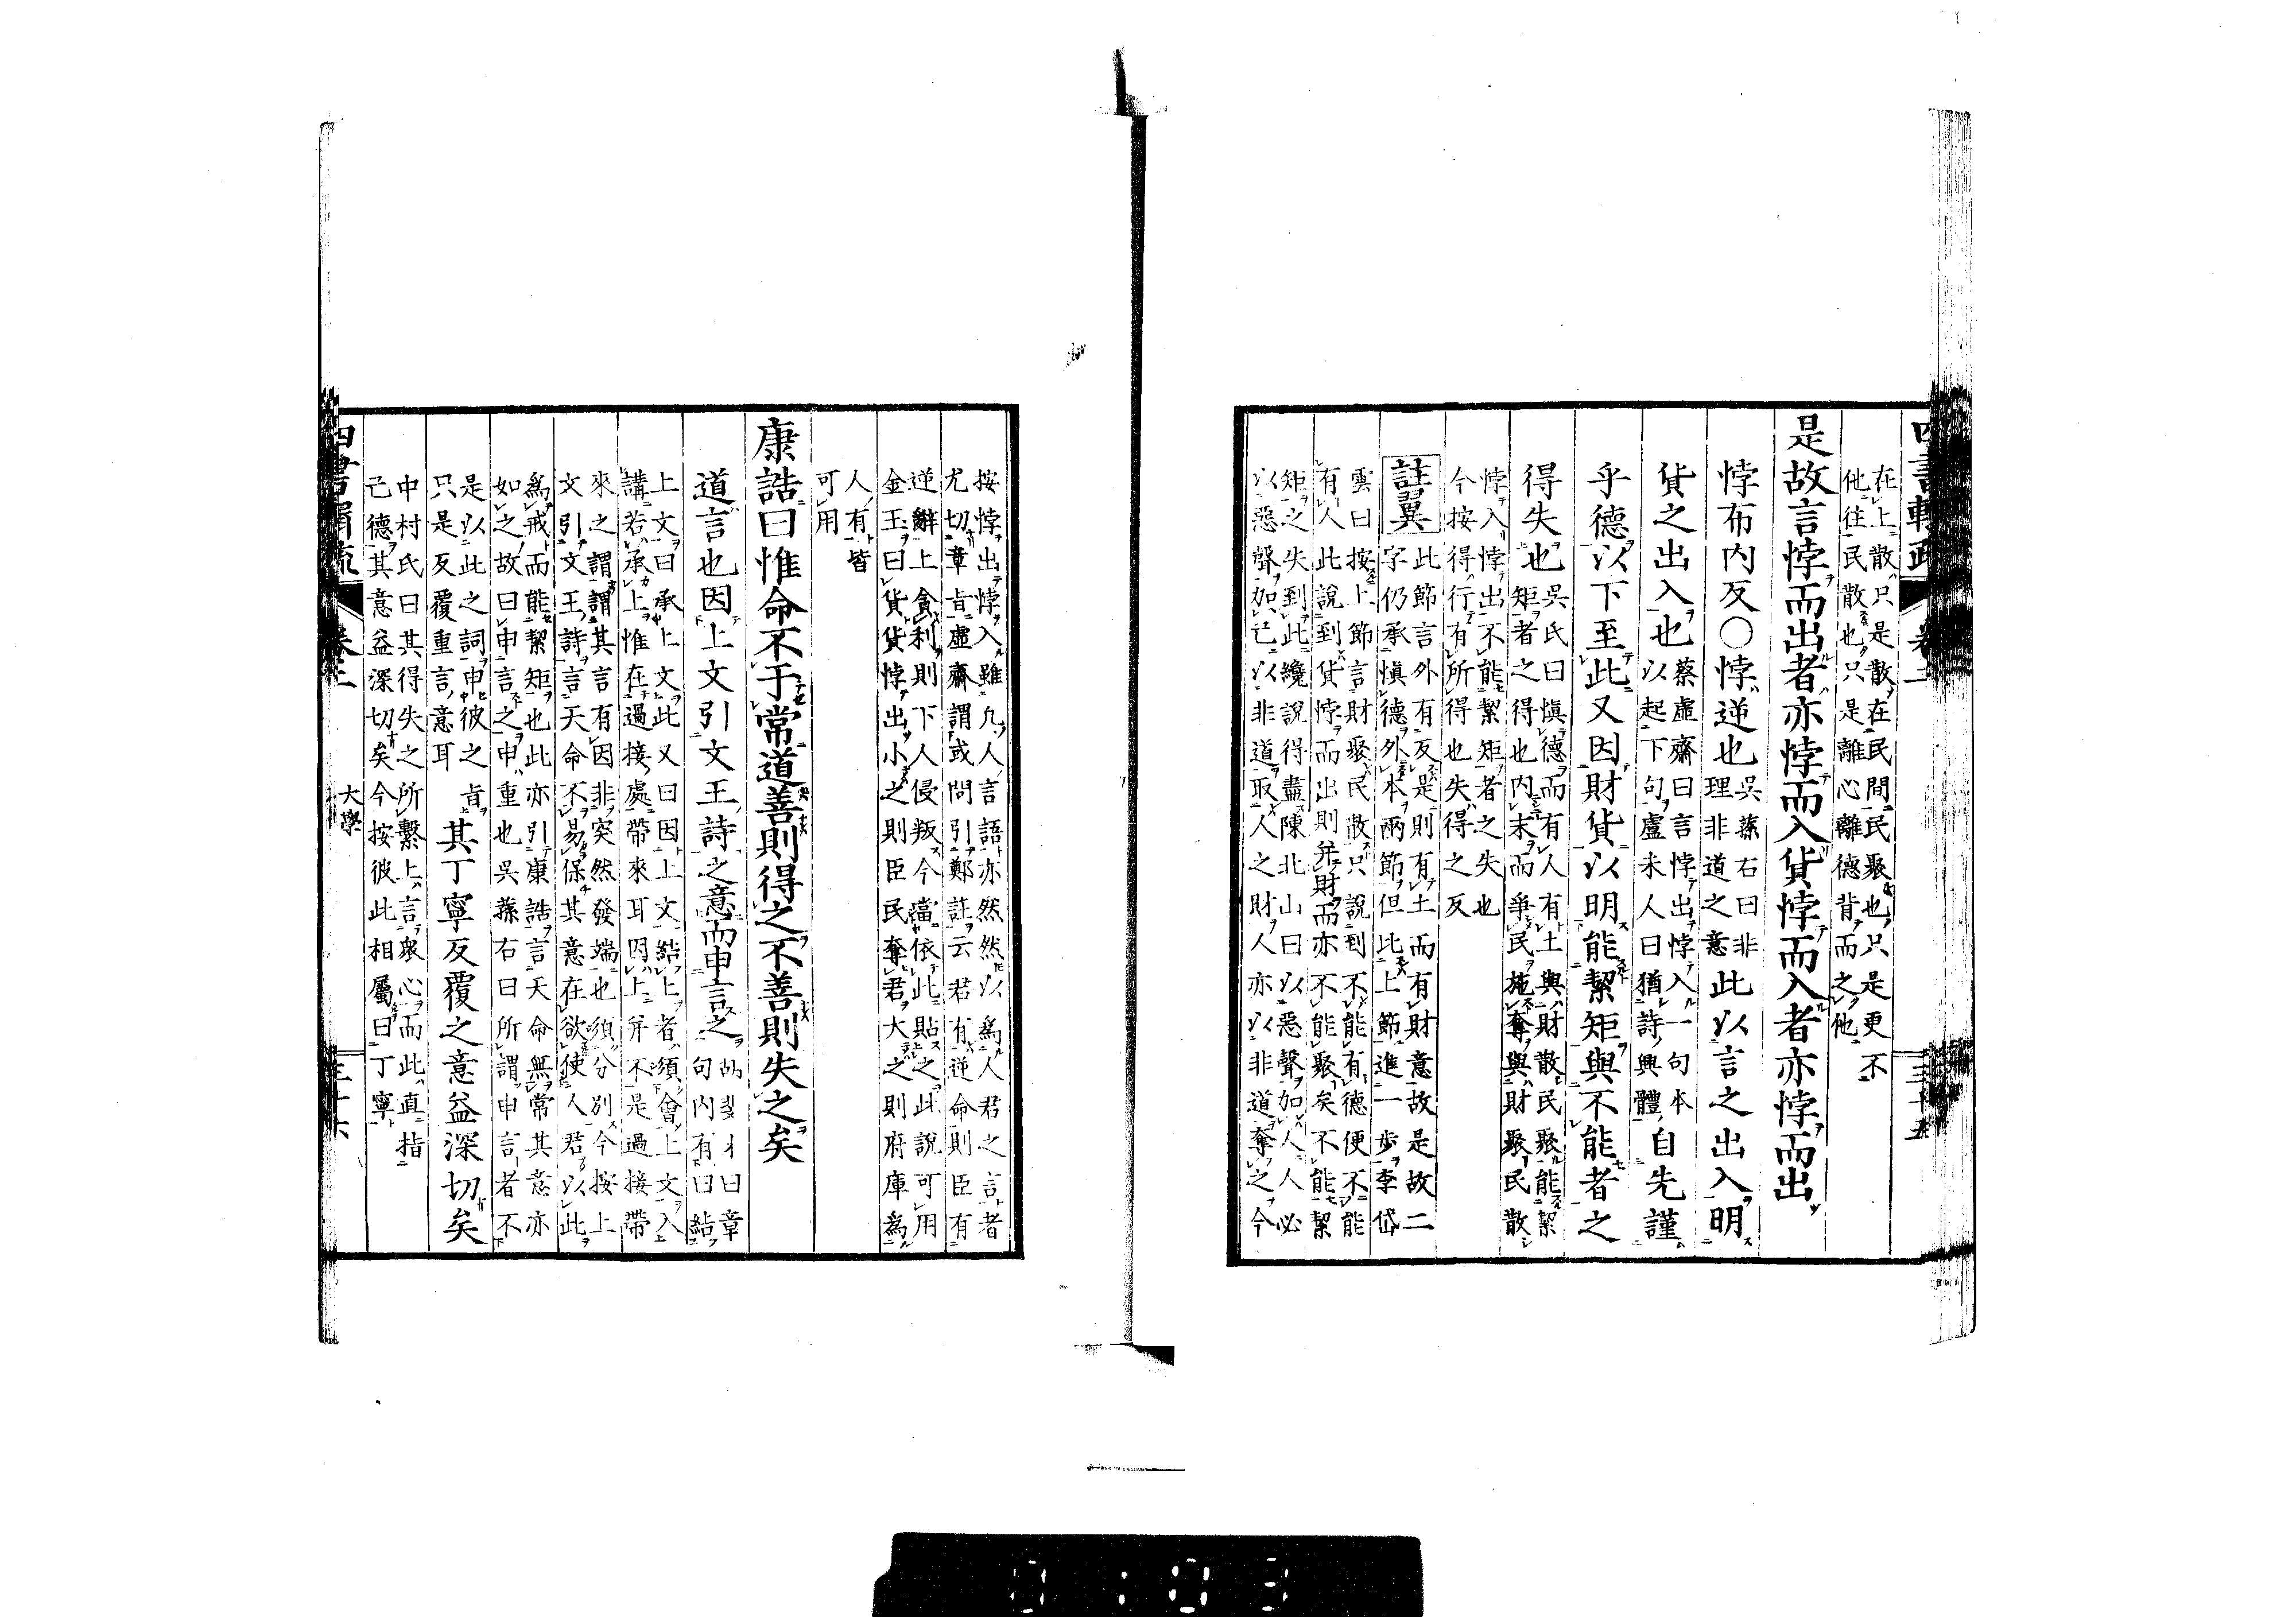 在上散只是散在民間民聚也只是更不
他往民散也只是離心離德背而之他
是故言悖而出者亦悖而入貨悖而入者亦悖而出
悖布內反〇悖逆也
吳蓀右曰非
理非道之意
此以言之出入明
貨之出入也
蔡虛齋曰言悖出悖入一句本
以起下句盧未人曰猶詩興體
自先謹
乎德以下至此又因財貨以明能絜矩與不能者之
得失也
吳氏曰慎德而有人有土與財散民聚能絜
矩者之得也內末而爭民施奪與財聚民散
悖入悖出不能絜矩者之失也
今按得行有所得也失得之反
註翼
此節言外有反是則有土而有財意故是故二
字仍承慎德外本兩節但此上節進一步李岱
雲曰按上節言財聚民散只說到不能有德便不能
有人此說到貨悖而出則并財而亦不能聚矣不能絜
矩之失到此纔說得盡陳北山曰以惡聲加人人必
以惡聲加己以非道取人之財人亦以非道奪之今
按悖出悖入雖凡人言語亦然然以為人君之言者
尤切章旨虛齋謂或問引鄭註云君有逆命則臣有
逆辭上貪利則下人侵叛今當依此貼之此說可用
金玉曰貨貨悖出小之則臣民奪君大之則府庫為
人有皆
可用
康誥曰惟命不于常道善則得之不善則失之矣
道言也因上文引文王詩之意而申言之
曰章
句內有曰結
上文曰承上文此又曰因上文結上者須會上文入
講若承上惟在過接處帶來耳因上并不是過接帶
來之謂謂其言有因非突然發端也須分別今按上
文引文王詩言天命不易保其意在欲使人君以此
為戒而能絜矩也此亦引康誥言天命無常其意亦
如之故曰申言之申重也吳蓀右曰所謂申言者不
是以此之詞申彼之旨
只是反覆重言意耳
其丁寧反覆之意益深切矣
中村氏曰其得失之所繫上言眾心而此直指
己德其意益深切矣今按彼此相屬曰丁寧
大學